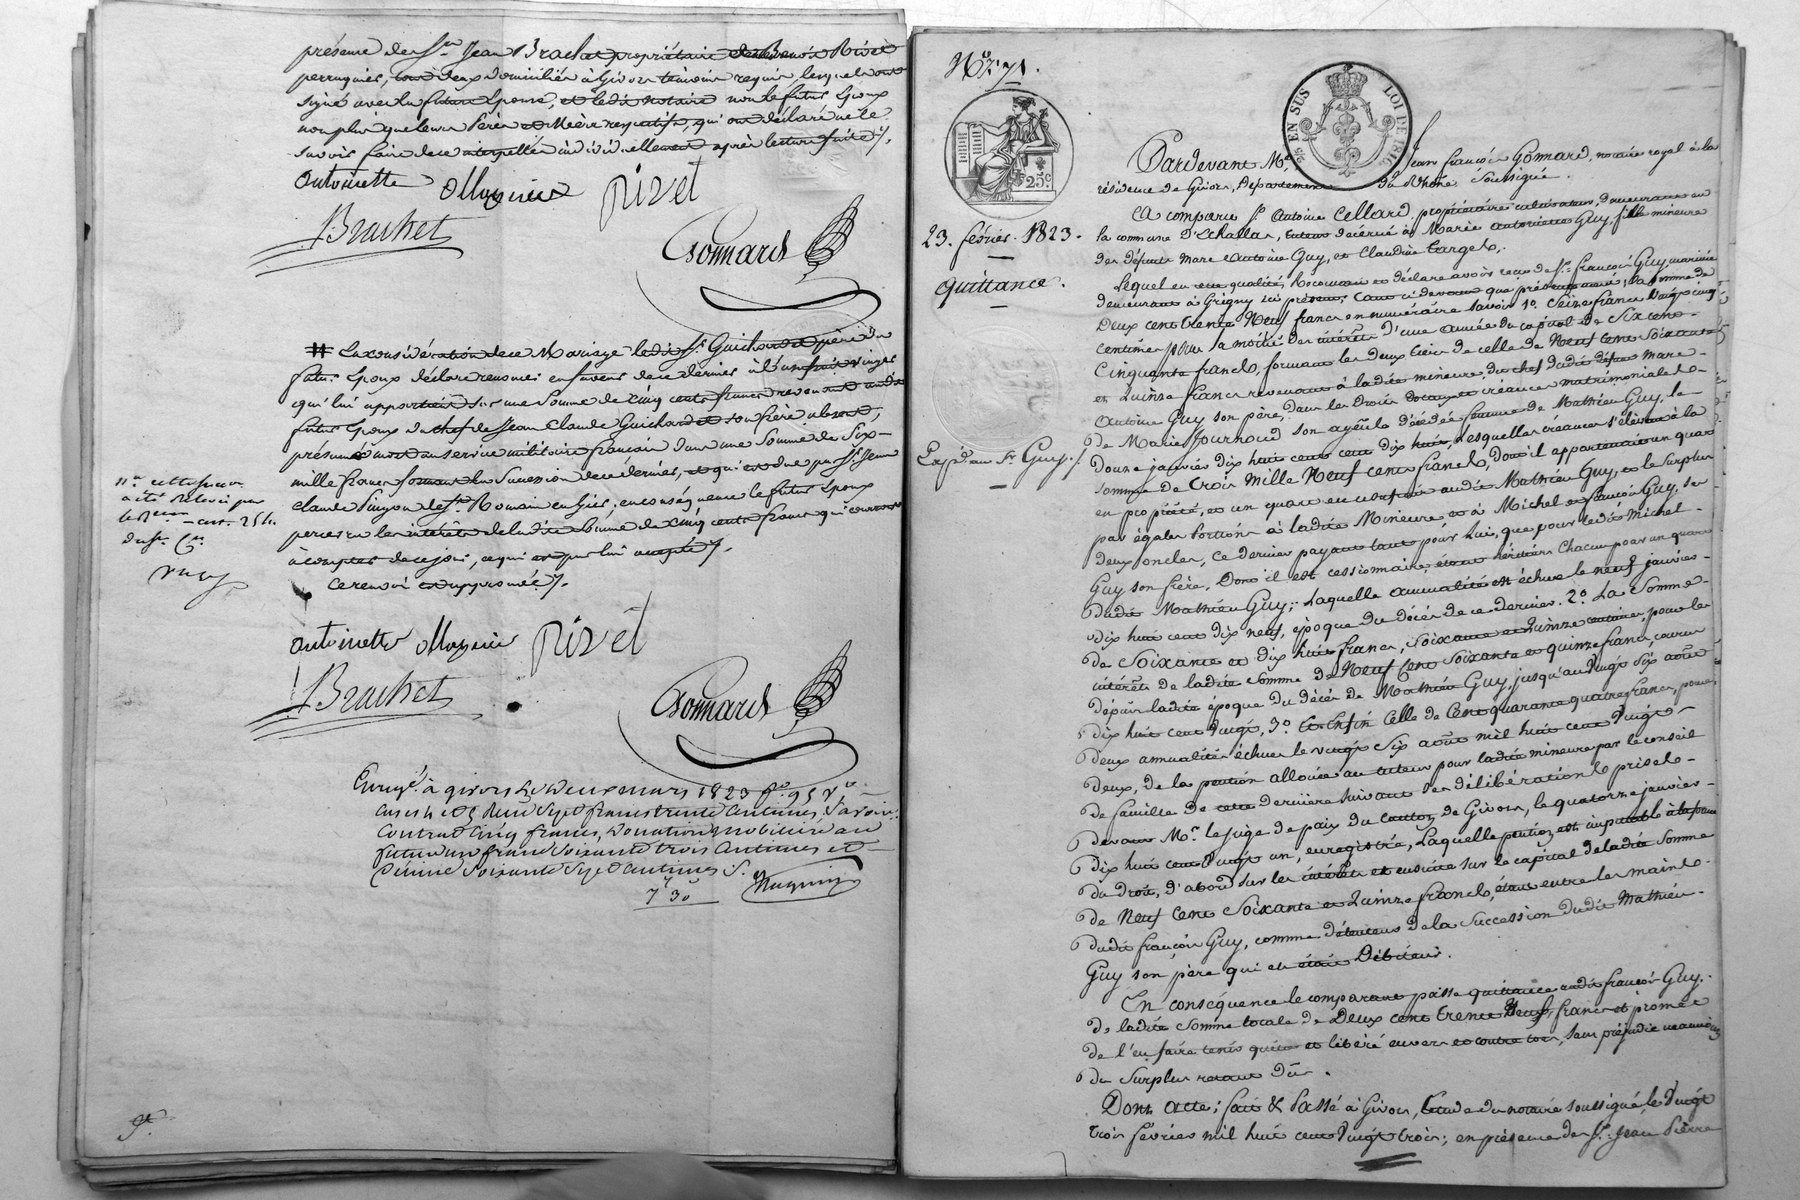 présence de Sr Jean Brachet propriétaire et de Benoit Rivet
perruquier, tous deux domiciliés à Givors témoins requis lesquels ont
signé avec la future Epouse, et ledit notaire non le futur Epoux
non plus que leurs Pères et Mères respectifs, qui ont déclaré ne le
savoir faire de ce interpellés individuellement après lecture faite ./.
Antoinette Mognier Rivet
Brachet
Gonnard
# En considération de ce Mariage ledit Sr Guichard père du
futur Epoux déclare renoncer en faveur de ce dernier à l'usufruit
qui lui appartient sur une somme de cinq cents francs revenant audit
futur Epoux du chef de Jean Claude Guichard son frère absent,
présumé mort au service militaire français dans une somme de Six
mille francs formant la succession de ce dernier, et qui est due par Sr Jean
claude Pinjon de St Romain en Gier, en conséquence le futur Epoux
percevra les intérêts de ladite somme de cinq cents francs qui courront
à compter de ce jour, ce qui est par lui accepté ./.
Ce renvoi est approuvé ./.
art. 25
Antoinette Mognier Rivet
Brachet
Gonnard
Enregé à givors le deux mars 1823 fo 95 Vo
cases 4 et 5 Reçu Sept francs trente Centimes, Savoir:
Contrat Cinq francs, Donation mobiliere au
futur un franc Soixante trois Centimes et
Dixme Soixante Sept Centimes ./.
7f 30c
No 71.
EN SUS LOI DE 1816
25c
23. février. 1823.
Quittance.
Expé au Sr Guy ./.
Pardevant Me Jean françois Gonnard, notaire royal à la
résidence de Givors, Département du Rhône soussigné.
A comparu Sr Antoine Cellard, propriétaire cultivateur, demeurant en
la commune D'Echallas, tuteur décerné à Marie antoinette Guy, fille mineure
des défunts Marc Antoine Guy, et Claudine Targe.
Lequel en cette qualité, Reconnait et déclare avoir reçu de Sr françois Guy marinier
demeurant à Grigny ici présent, tant ci devant que présentement, la somme de
Deux cent trente Neuf francs en numéraire savoir 1o. Seize francs Vingt cinq
centimes pour la moitié des intérêts d'une année du capital de Six cent
Cinquante francs, formant les deux tiers de celle de Neuf Cent Soixante
et Quinze francs revenant à ladite mineure, du chef dudit défunt Marc
Antoine Guy son père, dans les Droits dotaux et créances matrimoniales
de Marie Journoud son ayeule Décédée femme de Mathieu Guy, le
douze janvier dix huit cent dix huit, lesquelles créances s'élèvent à la
somme de Trois mille Neuf Cent francs, dont il appartenait un quart
en propriété, et un quart en usufruit audit Mathieu Guy, et le surplus
par égales portions à ladite Mineure et à Michel et françois Guy, ses
deux oncles, ce dernier payant tant pour lui, que pour ledit Michel
Guy son frère, Dont il est cessionnaire, étant héritiers chacun pour un quart
dudit Mathieu Guy; laquelle annualité est échue le neuf janvier
dix huit cent dix neuf, époque du décès de ce dernier. 2o. La Somme
de Soixante et dix huit francs, Soixante et Quinze centimes, pour les
intérêts de ladite somme de Neuf Cent Soixante et quinze francs, courus
depuis ladite époque du décès de Mathieu Guy, jusqu'au vingt six août
dix huit cent vingt, 3o Et Enfin Celle de Cent quarante quatre francs, pour
deux annualités échues le vingt six août mil huit cent vingt
deux, de la pention allouée au tuteur pour ladite mineure par le conseil
de famille de cette dernière suivant ses délibérations prises
devant Mr. le juge de paix du canton de Givors, le quatorze janvier
dix huit cent vingt un, enregistré, laquelle pention est imputable
de Droit, d'abord sur les intérêts et ensuite sur le capital de ladite Somme
de Neuf Cent Soixante et Quinze francs, étant entre les mains
dudit françois Guy, comme détenteur de la Succession dudit Mathieu
Guy son père qui en était Débiteur.
En conséquence le comparant passe quittance audit françois Guy
de ladite Somme totale de Deux cent trente Neuf francs et promet
de l'en faire tenir quitte et libéré envers et contre tous, sans préjudice néanmoins
du Surplus restant dû.
Dont acte; fait & Passé à Givors, Etude du notaire soussigné le vingt
trois février mil huit cent vingt trois; en présence de Sr. Jean Pierre